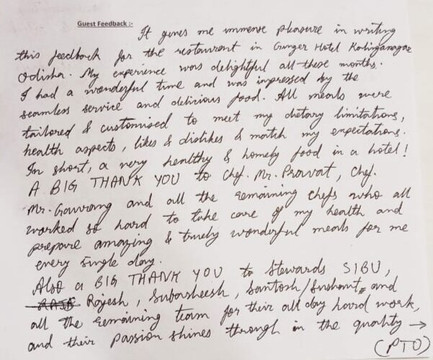 Guest Feedback :-
It gives me immense pleasure in writing
this feedback for the restaurant in Ginger Hotel Kalinganagar
Odisha. My experience was delightful all these months.
I had a wonderful time and was impressed by the
seamless service and delicious food. All meals were
tailored & customised to meet my dietary limitations,
health aspects, likes & dislikes & match my expectations.
In short, a very healthy & homely food in a hotel!
A BIG THANK YOU to Chef. Mr. Pravat, Chef.
Mr. Gourang and all the remaining chefs who all
worked so hard to take care of my health and
prepare amazing & truely wonderful meals for me
every single day.
Also a BIG THANK YOU to Stewards SIBU,
Rajesh, Subasheesh, Santosh/Sushant, and
all the remaining team for their all day hard work,
and their passion shines through in the quality →
(PTO)